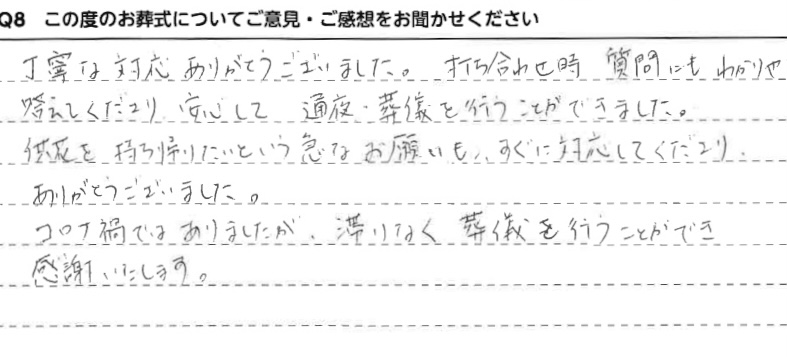 Q8 この度のお葬式についてご意見・ご感想をお聞かせください
丁寧な対応ありがとうございました。打ち合わせ時 質問にも わかりや
答えてくださり 安心して 通夜・葬儀を行うことができました。
供花を持ち帰りたいという急なお願いも、すぐに対応してくださり、
ありがとうございました。
コロナ禍ではありましたが、滞りなく 葬儀を行うことができ
感謝いたします。